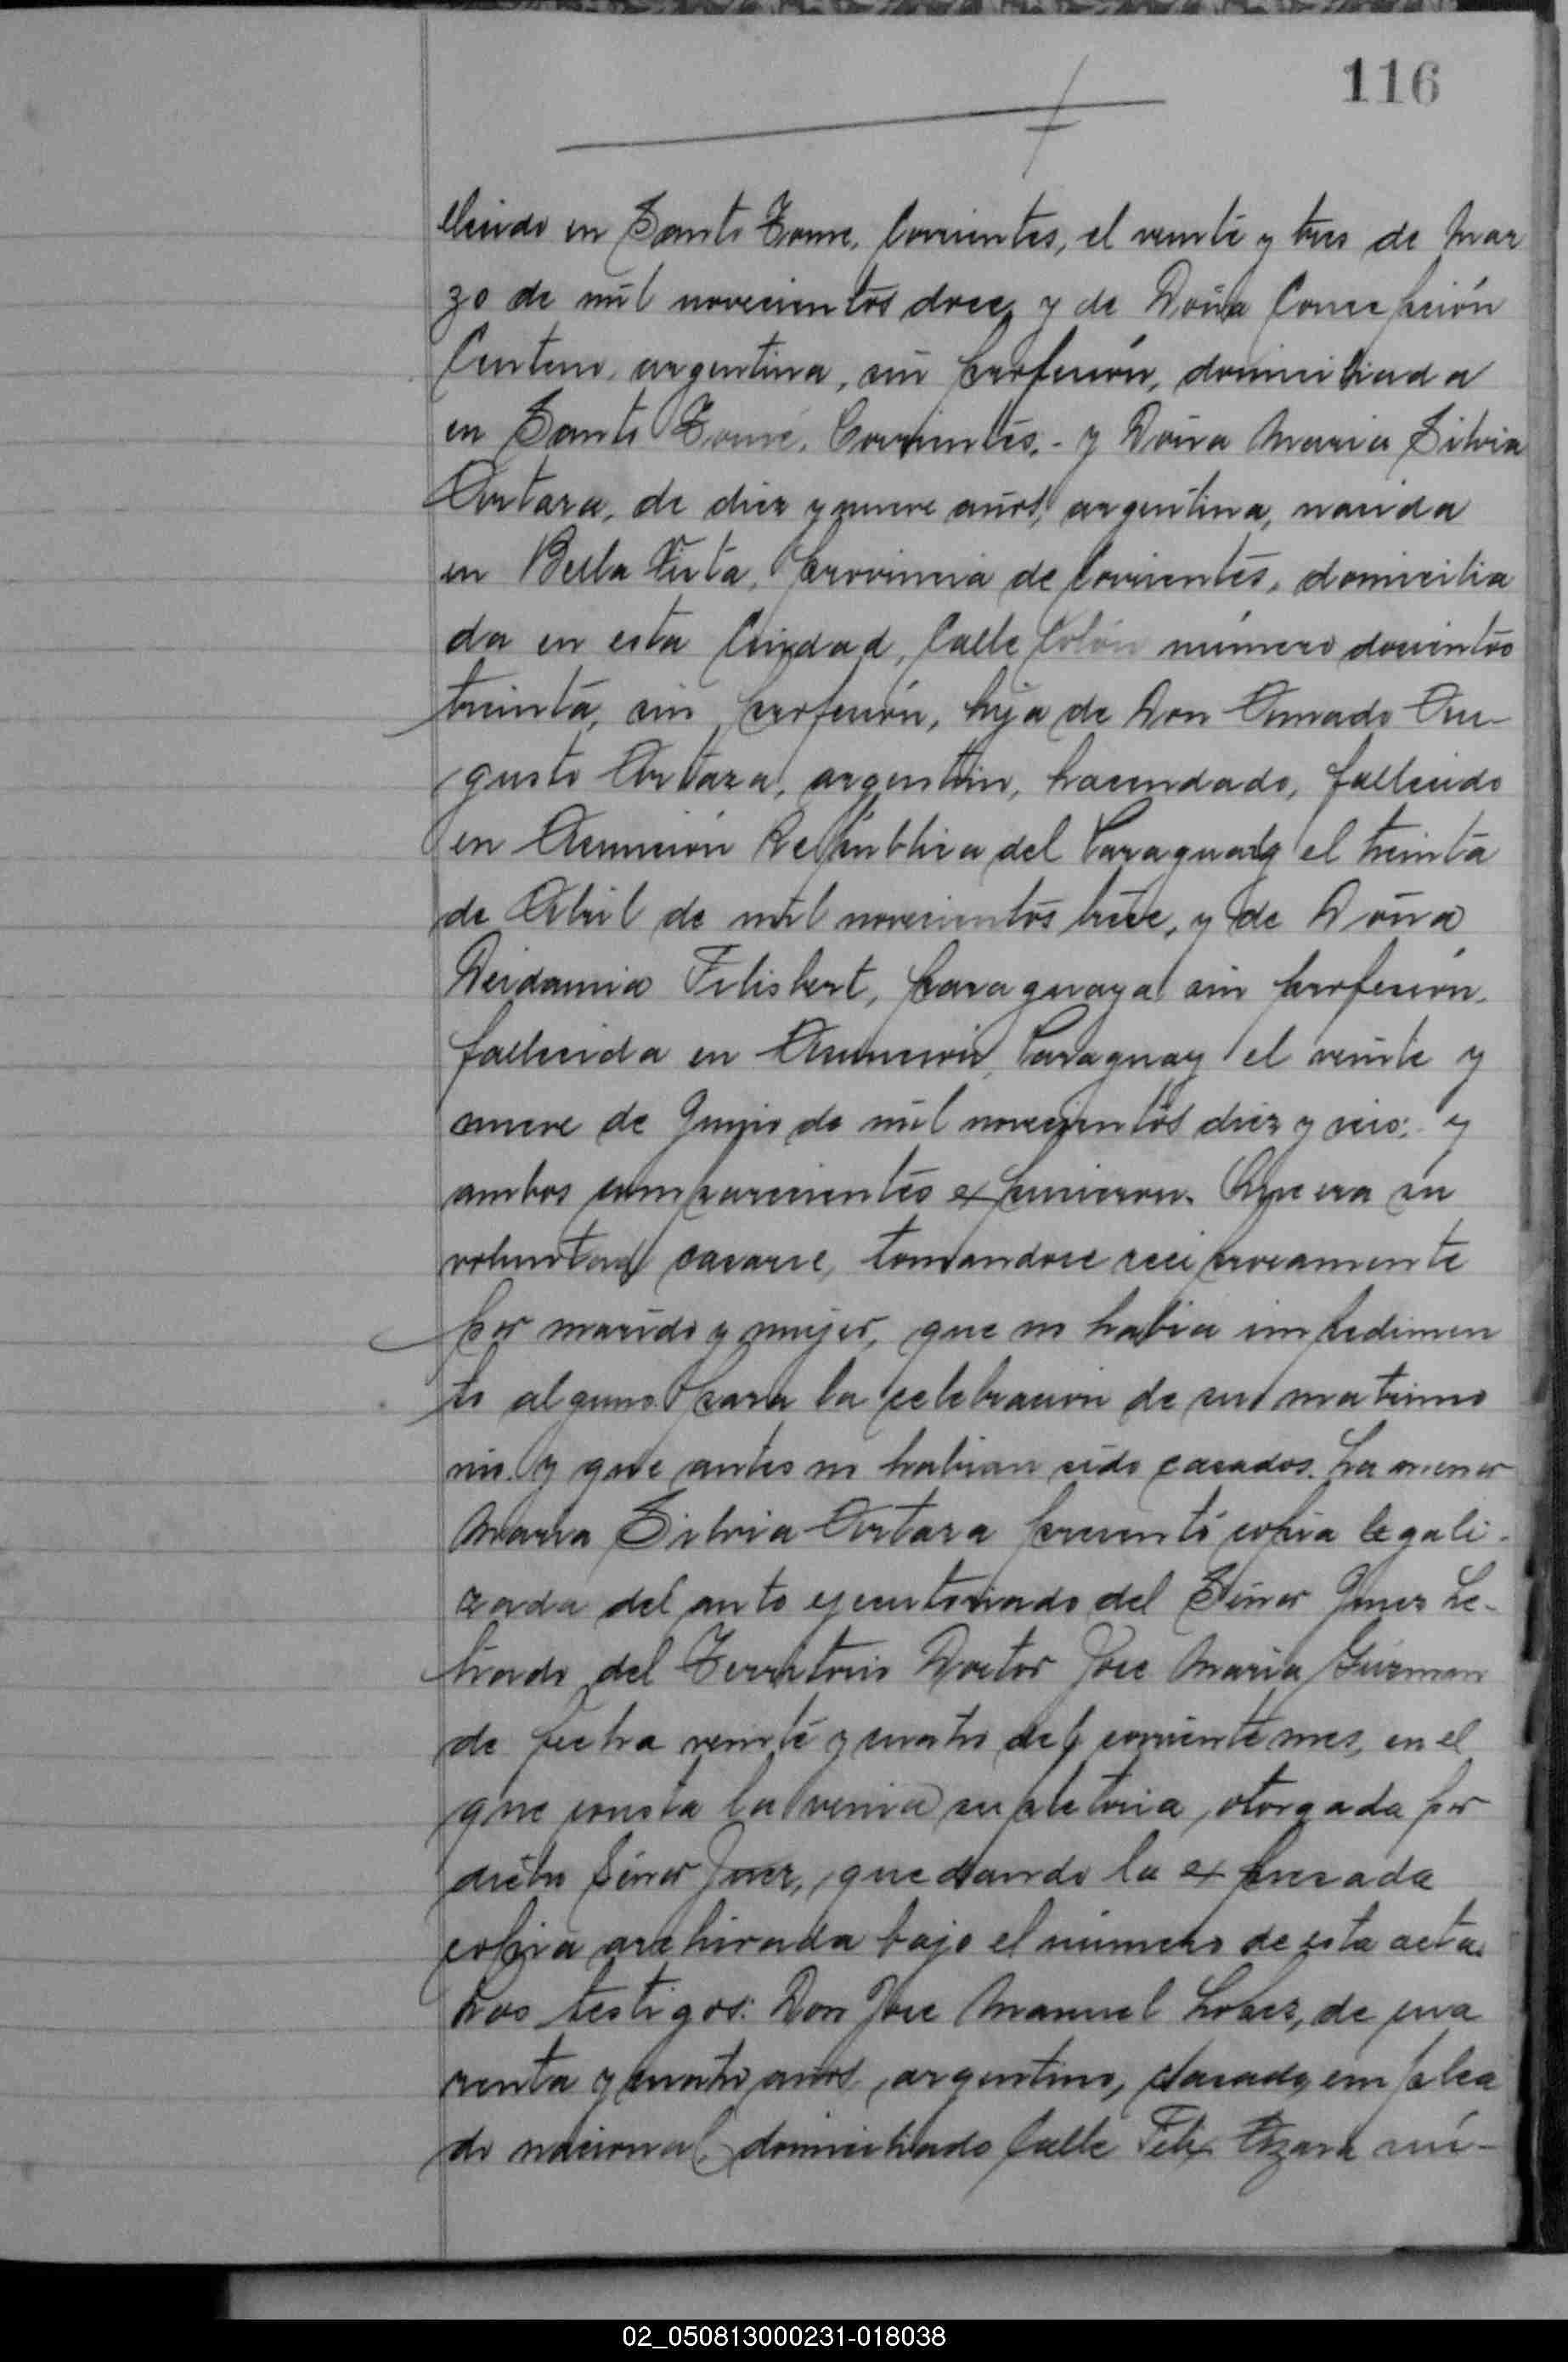 116
llecido en Santo Tomé, Corrientes, el veinte y tres de Mar
zo de mil novecientos doce, y de Doña Concepción
Centeno, argentina, sin profesión, domiciliada
en Santo Tomé, Corrientes.- y Doña Maria Silvia
Artaza, de diez y nueve años, argentina, nacida
en Bella Vista, Provincia de Corrientes, domicilia
da en esta Ciudad, Calle Colón número docientos
treinta, sin profesión, hija de Don Amado Au-
gusto Artaza, argentino, hacendado, fallecido
en Asunción República del Paraguay el treinta
de Abril de mil novecientos trece, y de Doña
Deidamia Filisbert, paraguaya sin profesión,
fallecida en Asunción, Paraguay el veinte y
nueve de Junio de mil novecientos diez y seis; y
ambos comparecientes expusieron. Que era su
voluntad casarse, tomandose reciprocamente
por marido y mujer, que no habia impedimen
to alguno para la celebracion de su matrimo
nio. y que antes no habian sido casados. La menor
Maria Silvia Artaza presentó copia legali-
zada del auto ejecutoriado del Señor Juez Le-
trado del Territorio Doctor Jose Maria Guzman
de fecha veinte y cuatro del corriente mes, en el
que consta la venia supletoria, otorgada por
dicho Señor Juez, quedando la expresada
copia archivada bajo el número de esta acta.
Los testigos: Don Jose Manuel Lopez, de cua
renta y cuatro años, argentino, casado, emplea
do nacional, domiciliado Calle Felix Azara nú-
02_050813000231-018038